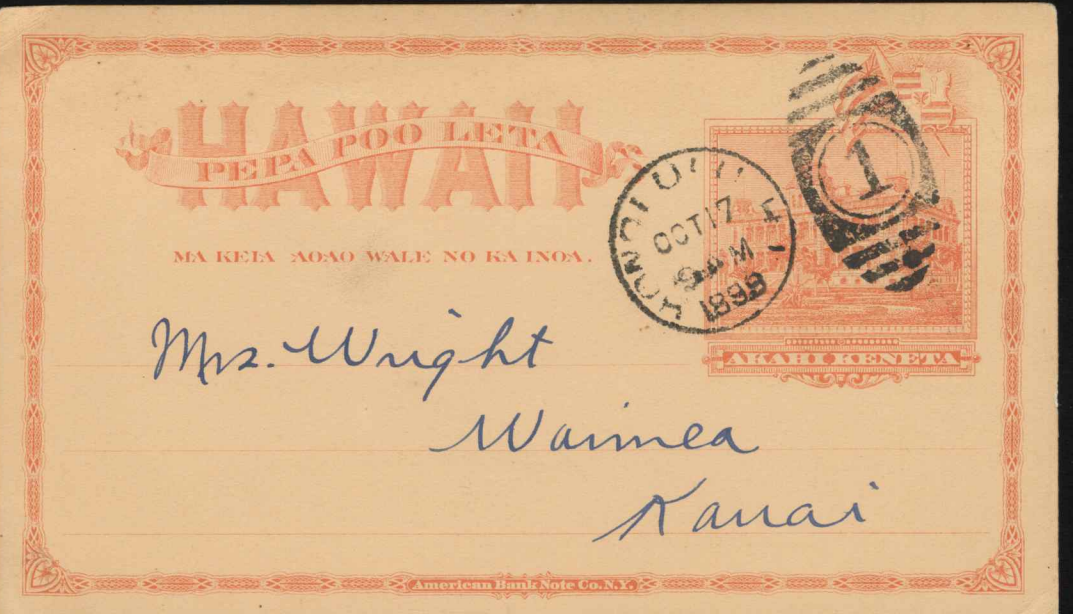 HAWAII
PEPA POO LETA
MA KEIA AOAO WALE NO KA INOA.
HONOLULU
OCT 17
AM
1
AKAHI KENETA
Mrs. Wright
Waimea
Kauai
American Bank Note Co. N.Y.